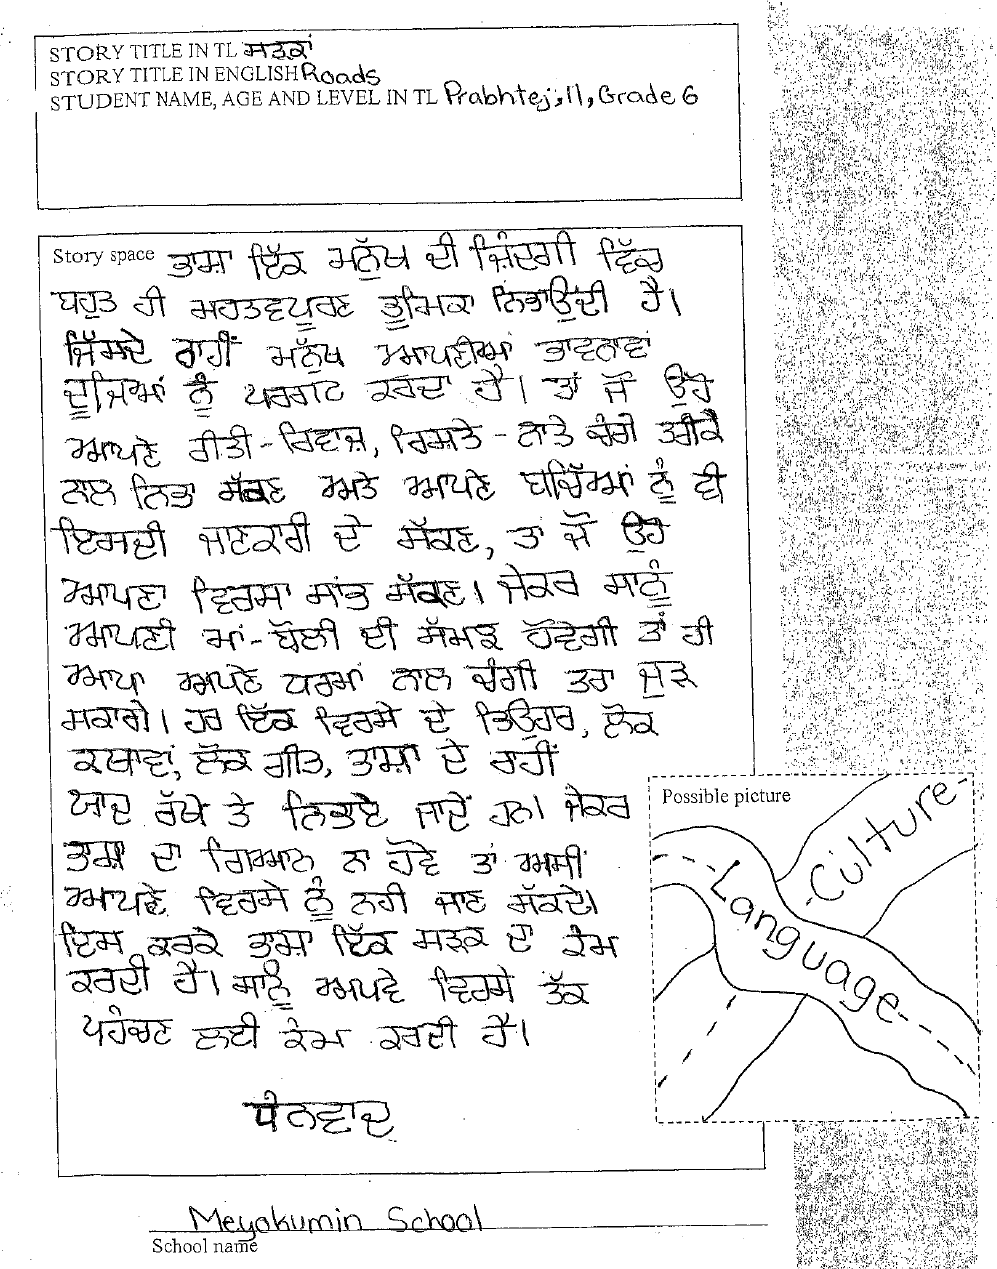 STORY TITLE IN TL ਸੜਕਾਂ
STORY TITLE IN ENGLISH Roads
STUDENT NAME, AGE AND LEVEL IN TL Prabhtej, 11, Grade 6
Story space ਭਾਸ਼ਾ ਇੱਕ ਮਨੁੱਖ ਦੀ ਜ਼ਿੰਦਗੀ ਵਿੱਚ
ਬਹੁਤ ਹੀ ਮਹਤਵਪੂਰਣ ਭੂਮਿਕਾ ਨਿਭਾਉਂਦੀ ਹੈ।
ਜਿੱਸਦੇ ਰਾਹੀਂ ਮਨੁੱਖ ਆਪਣੀਆਂ ਭਾਵਨਾਵਾਂ
ਦੂਜਿਆਂ ਨੂੰ ਪਰਗਟ ਕਰਦਾ ਹੈ। ਤਾਂ ਜੋ ਉਹ
ਆਪਣੇ ਰੀਤੀ-ਰਿਵਾਜ਼, ਰਿਸ਼ਤੇ-ਨਾਤੇ ਚੰਗੇ ਤਰੀਕੇ
ਨਾਲ ਨਿਭਾ ਸੱਕਣ ਅਤੇ ਆਪਣੇ ਬਚਿੱਆਂ ਨੂੰ ਵੀ
ਇਸਦੀ ਜਾਣਕਾਰੀ ਦੇ ਸੱਕਣ, ਤਾਂ ਜੋ ਉਹ
ਆਪਣਾ ਵਿਰਸਾ ਸਾਂਭ ਸੱਕਣ। ਜੇਕਰ ਸਾਨੂੰ
ਆਪਣੀ ਮਾਂ-ਬੋਲੀ ਦੀ ਸੱਮਝ ਹੋਵੇਗੀ ਤਾਂ ਹੀ
ਆਪਾ ਅਪਣੇ ਧਰਮਾਂ ਨਾਲ ਚੰਗੀ ਤਰਾ ਜੁੜ
ਸਕਾਗੇ। ਹਰ ਇੱਕ ਵਿਰਸੇ ਦੇ ਤਿਉਹਰ, ਲੋਕ
ਕਥਾਵਾਂ, ਲੋਕ ਗੀਤ, ਭਾਸ਼ਾ ਦੇ ਰਾਹੀਂ
ਯਾਦ ਰੱਖੇ ਤੇ ਨਿਭਾਏ ਜਾਂਦੇ ਹਨ। ਜੇਕਰ
ਭਾਸ਼ਾ ਦਾ ਗਿਆਨ ਨਾ ਹੋਵੇ ਤਾਂ ਅਸੀਂ
ਆਪਣੇ ਵਿਰਸੇ ਨੂੰ ਨਹੀ ਜਾਣ ਸੱਕਦੇ।
ਇਸ ਕਰਕੇ ਭਾਸ਼ਾ ਇੱਕ ਸੜਕ ਦਾ ਕੰਮ
ਕਰਦੀ ਹੈ। ਸਾਨੂੰ ਅਪਣੇ ਵਿਰਸੇ ਤੱਕ
ਪਹੰਚਣ ਲਈ ਕੰਮ ਕਰਦੀ ਹੈ।
ਧੰਨਵਾਦ
Possible picture
-Culture-
Language
Meyokumin School
School name